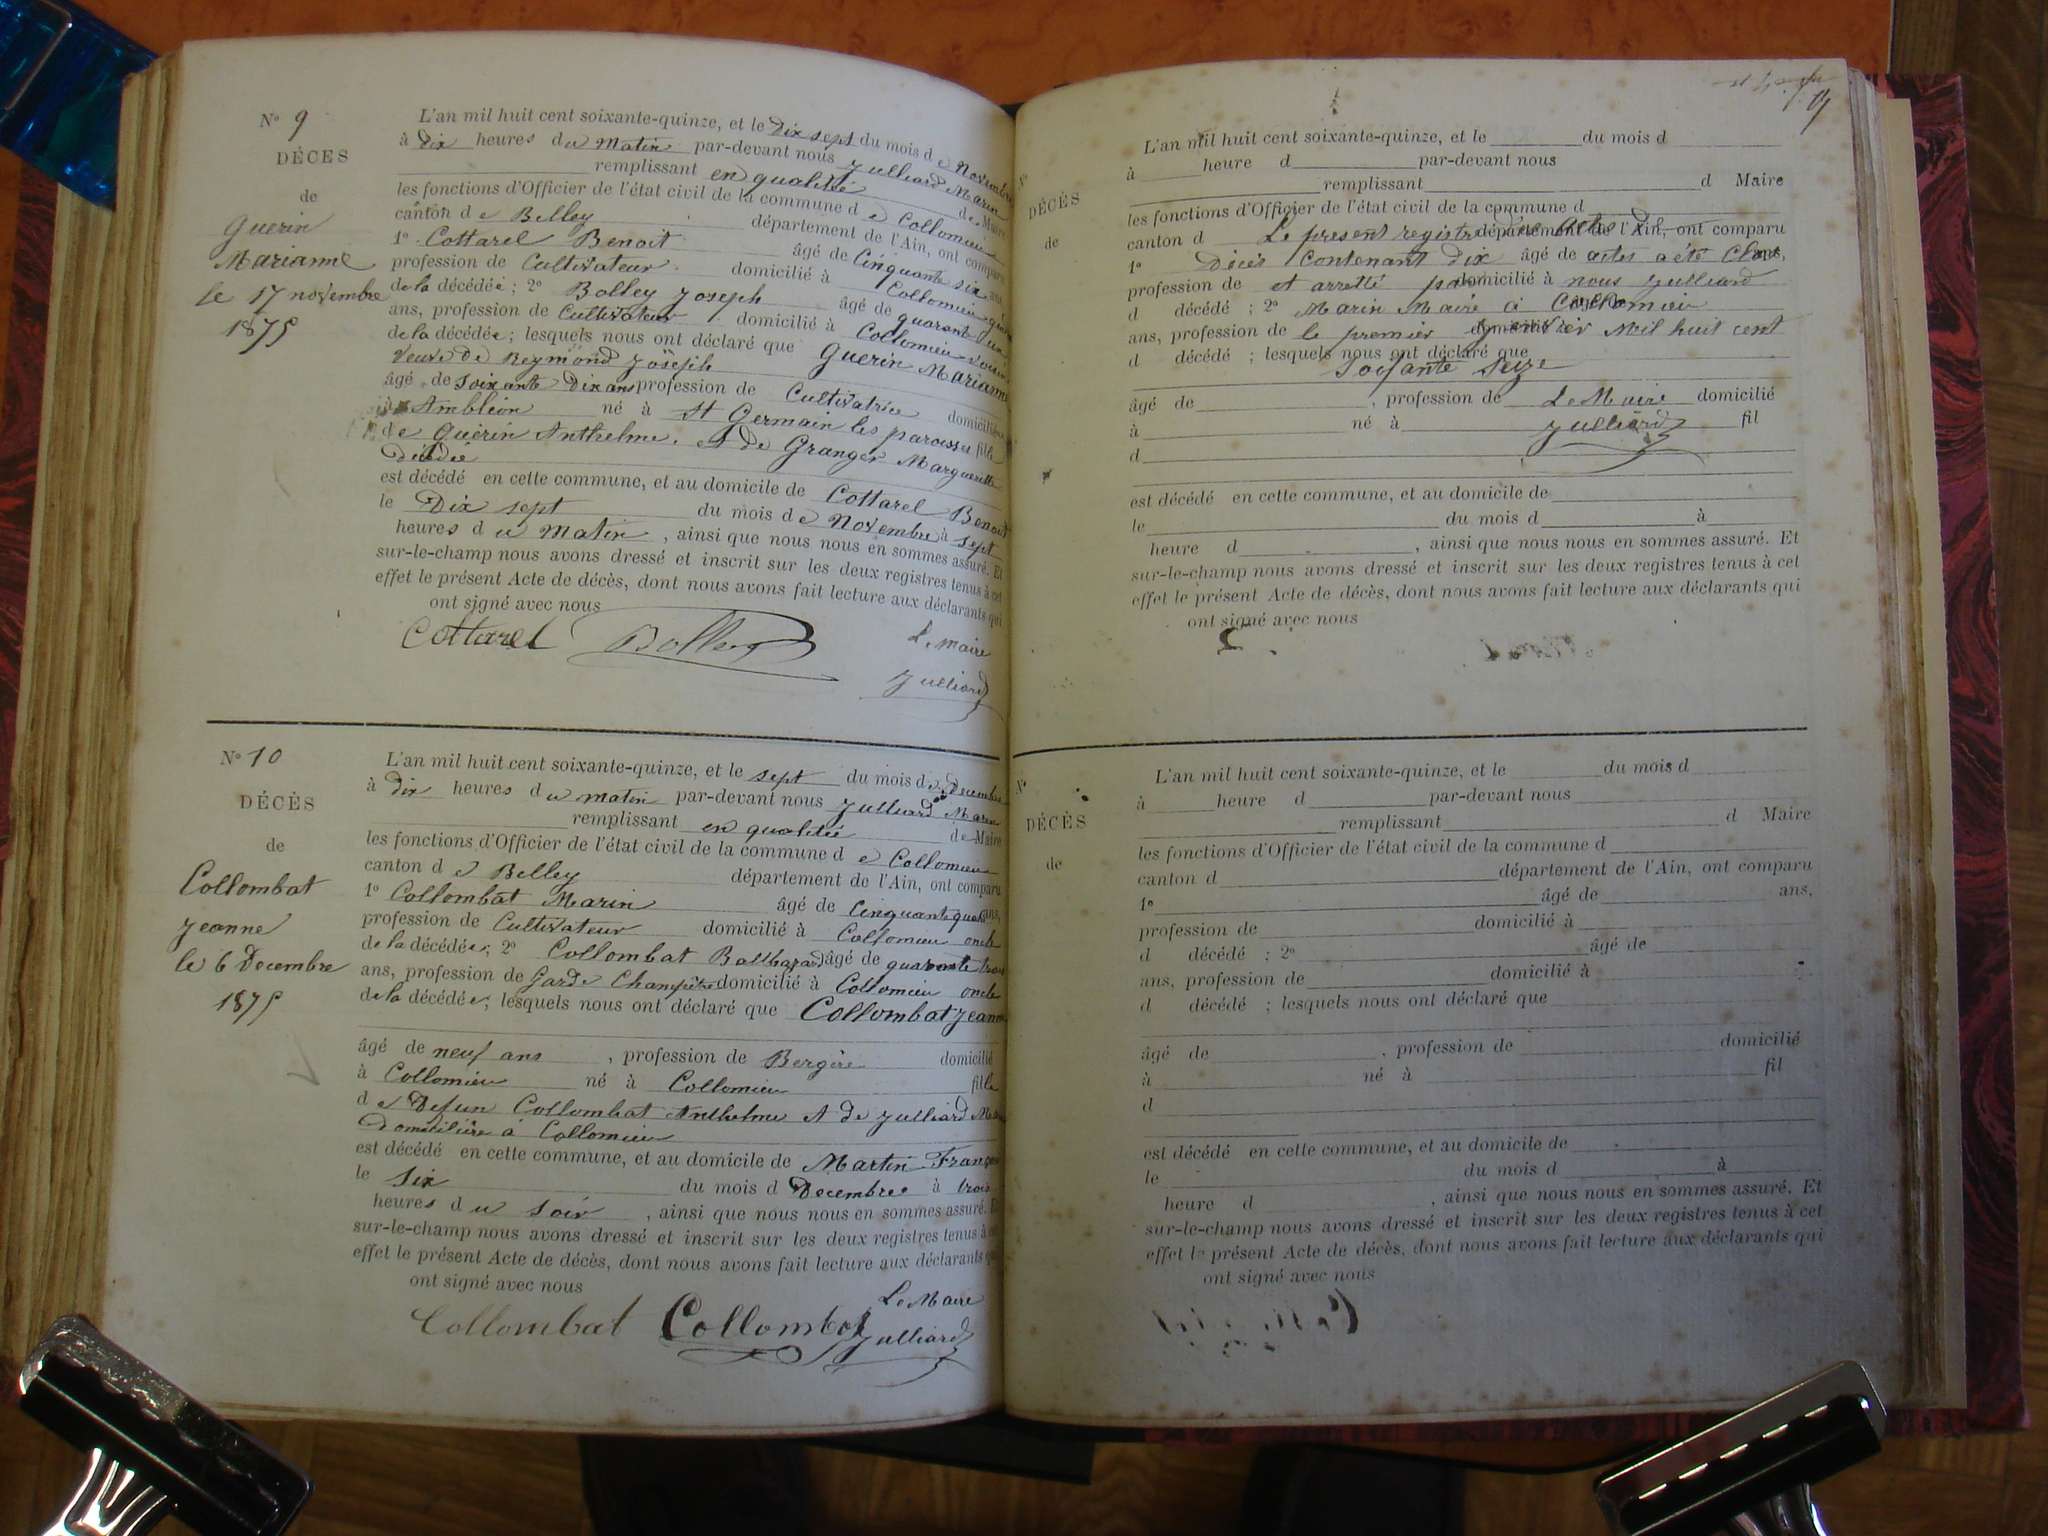 N° 9
DÉCES
de
Guerin
Marianne
le 17 novembre
1875
L'an mil huit cent soixante-quinze, et le Dix sept du mois de Novembre
à Dix heures du Matin par-devant nous Julliard Marin
remplissant en qualitié de Maire
les fonctions d'Officier de l'état civil de la commune de Collomieu
canton de Belley département de l'Ain, ont comparu
1° Cottarel Benoit âgé de Cinquante six ans
profession de Cultivateur domicilié à Collomieu
de la décédée ; 2° Bolley Joseph âgé de quarante un
ans, profession de Cultivateur domicilié à Collomieu voisin
de la décédée ; lesquels nous ont déclaré que Guerin Marianne
Veuve de Reymond Joseph
âgé de soixante Dix ans profession de Cultivatrice domicilié
à Ambléon né à St Germain les paroisses fille
de Guérin Anthelme et de Granger Margueritte
Décédée
est décédé en cette commune, et au domicile de Cottarel Benoit
le Dix sept du mois de Novembre à sept
heures du Matin, ainsi que nous nous en sommes assuré. Et
sur-le-champ nous avons dressé et inscrit sur les deux registres tenus à cet
effet le présent Acte de décès, dont nous avons fait lecture aux déclarants qui
ont signé avec nous
Cottarel Bolley Le maire
Julliard
N° 10
DÉCÈS
de
Collombat
Jeanne
le 6 Decembre
1875
L'an mil huit cent soixante-quinze, et le sept du mois de Decembre
à dix heures du matin par-devant nous Julliard Marin
remplissant en qualitié de Maire
les fonctions d'Officier de l'état civil de la commune de Collomieu
canton de Belley département de l'Ain, ont comparu
1° Collombat Marin âgé de Cinquante quatre ans,
profession de Cultivateur domicilié à Collomieu oncle
de la décédée, 2° Collombat Balthazard âgé de quarante trois
ans, profession de Garde Champêtre domicilié à Collomieu oncle
de la décédée, lesquels nous ont déclaré que Collombat Jeanne
âgé de neuf ans, profession de Bergère domicilié
à Collomieu né à Collomieu fille
de Defun Collombat Anthelme et de Julliard
Domicilière à Collomieu
est décédé en cette commune, et au domicile de Martin François
le Six du mois d Decembre à trois
heures du soir, ainsi que nous nous en sommes assuré. Et
sur-le-champ nous avons dressé et inscrit sur les deux registres tenus à cet
effet le présent Acte de décès, dont nous avons fait lecture aux déclarants qui
ont signé avec nous
Le Maire
Collombat Collombat Julliard
N°
DÉCÈS
de
L'an mil huit cent soixante-quinze, et le du mois d
à heure d par-devant nous
remplissant d Maire
les fonctions d'Officier de l'état civil de la commune d
canton d Le present registre des actes de département de l'Ain, ont comparu
1° Décès contenant dix âgé de actes a été Clos ans,
profession de et arretté par domicilié à nous Julliard
d décédé ; 2° Marin Maire à Collomieu âgé de
ans, profession de le premier Janvier Mil huit cent domicilié à
d décédé ; lesquels nous ont déclaré que
Soixante Seize
âgé de , profession de Le Maire domicilié
à né à Julliard fil
d
est décédé en cette commune, et au domicile de
le du mois d à
heure d , ainsi que nous nous en sommes assuré. Et
sur-le-champ nous avons dressé et inscrit sur les deux registres tenus à cet
effet le présent Acte de décès, dont nous avons fait lecture aux déclarants qui
ont signé avec nous
N°
DÉCÈS
de
L'an mil huit cent soixante-quinze, et le du mois d
à heure d par-devant nous
remplissant d Maire
les fonctions d'Officier de l'état civil de la commune d
canton d département de l'Ain, ont comparu
1° âgé de ans,
profession de domicilié à
d décédé ; 2° âgé de
ans, profession de domicilié à
d décédé ; lesquels nous ont déclaré que
âgé de , profession de domicilié
à né à fil
d
est décédé en cette commune, et au domicile de
le du mois d à
heure d , ainsi que nous nous en sommes assuré. Et
sur-le-champ nous avons dressé et inscrit sur les deux registres tenus à cet
effet le présent Acte de décès, dont nous avons fait lecture aux déclarants qui
ont signé avec nous